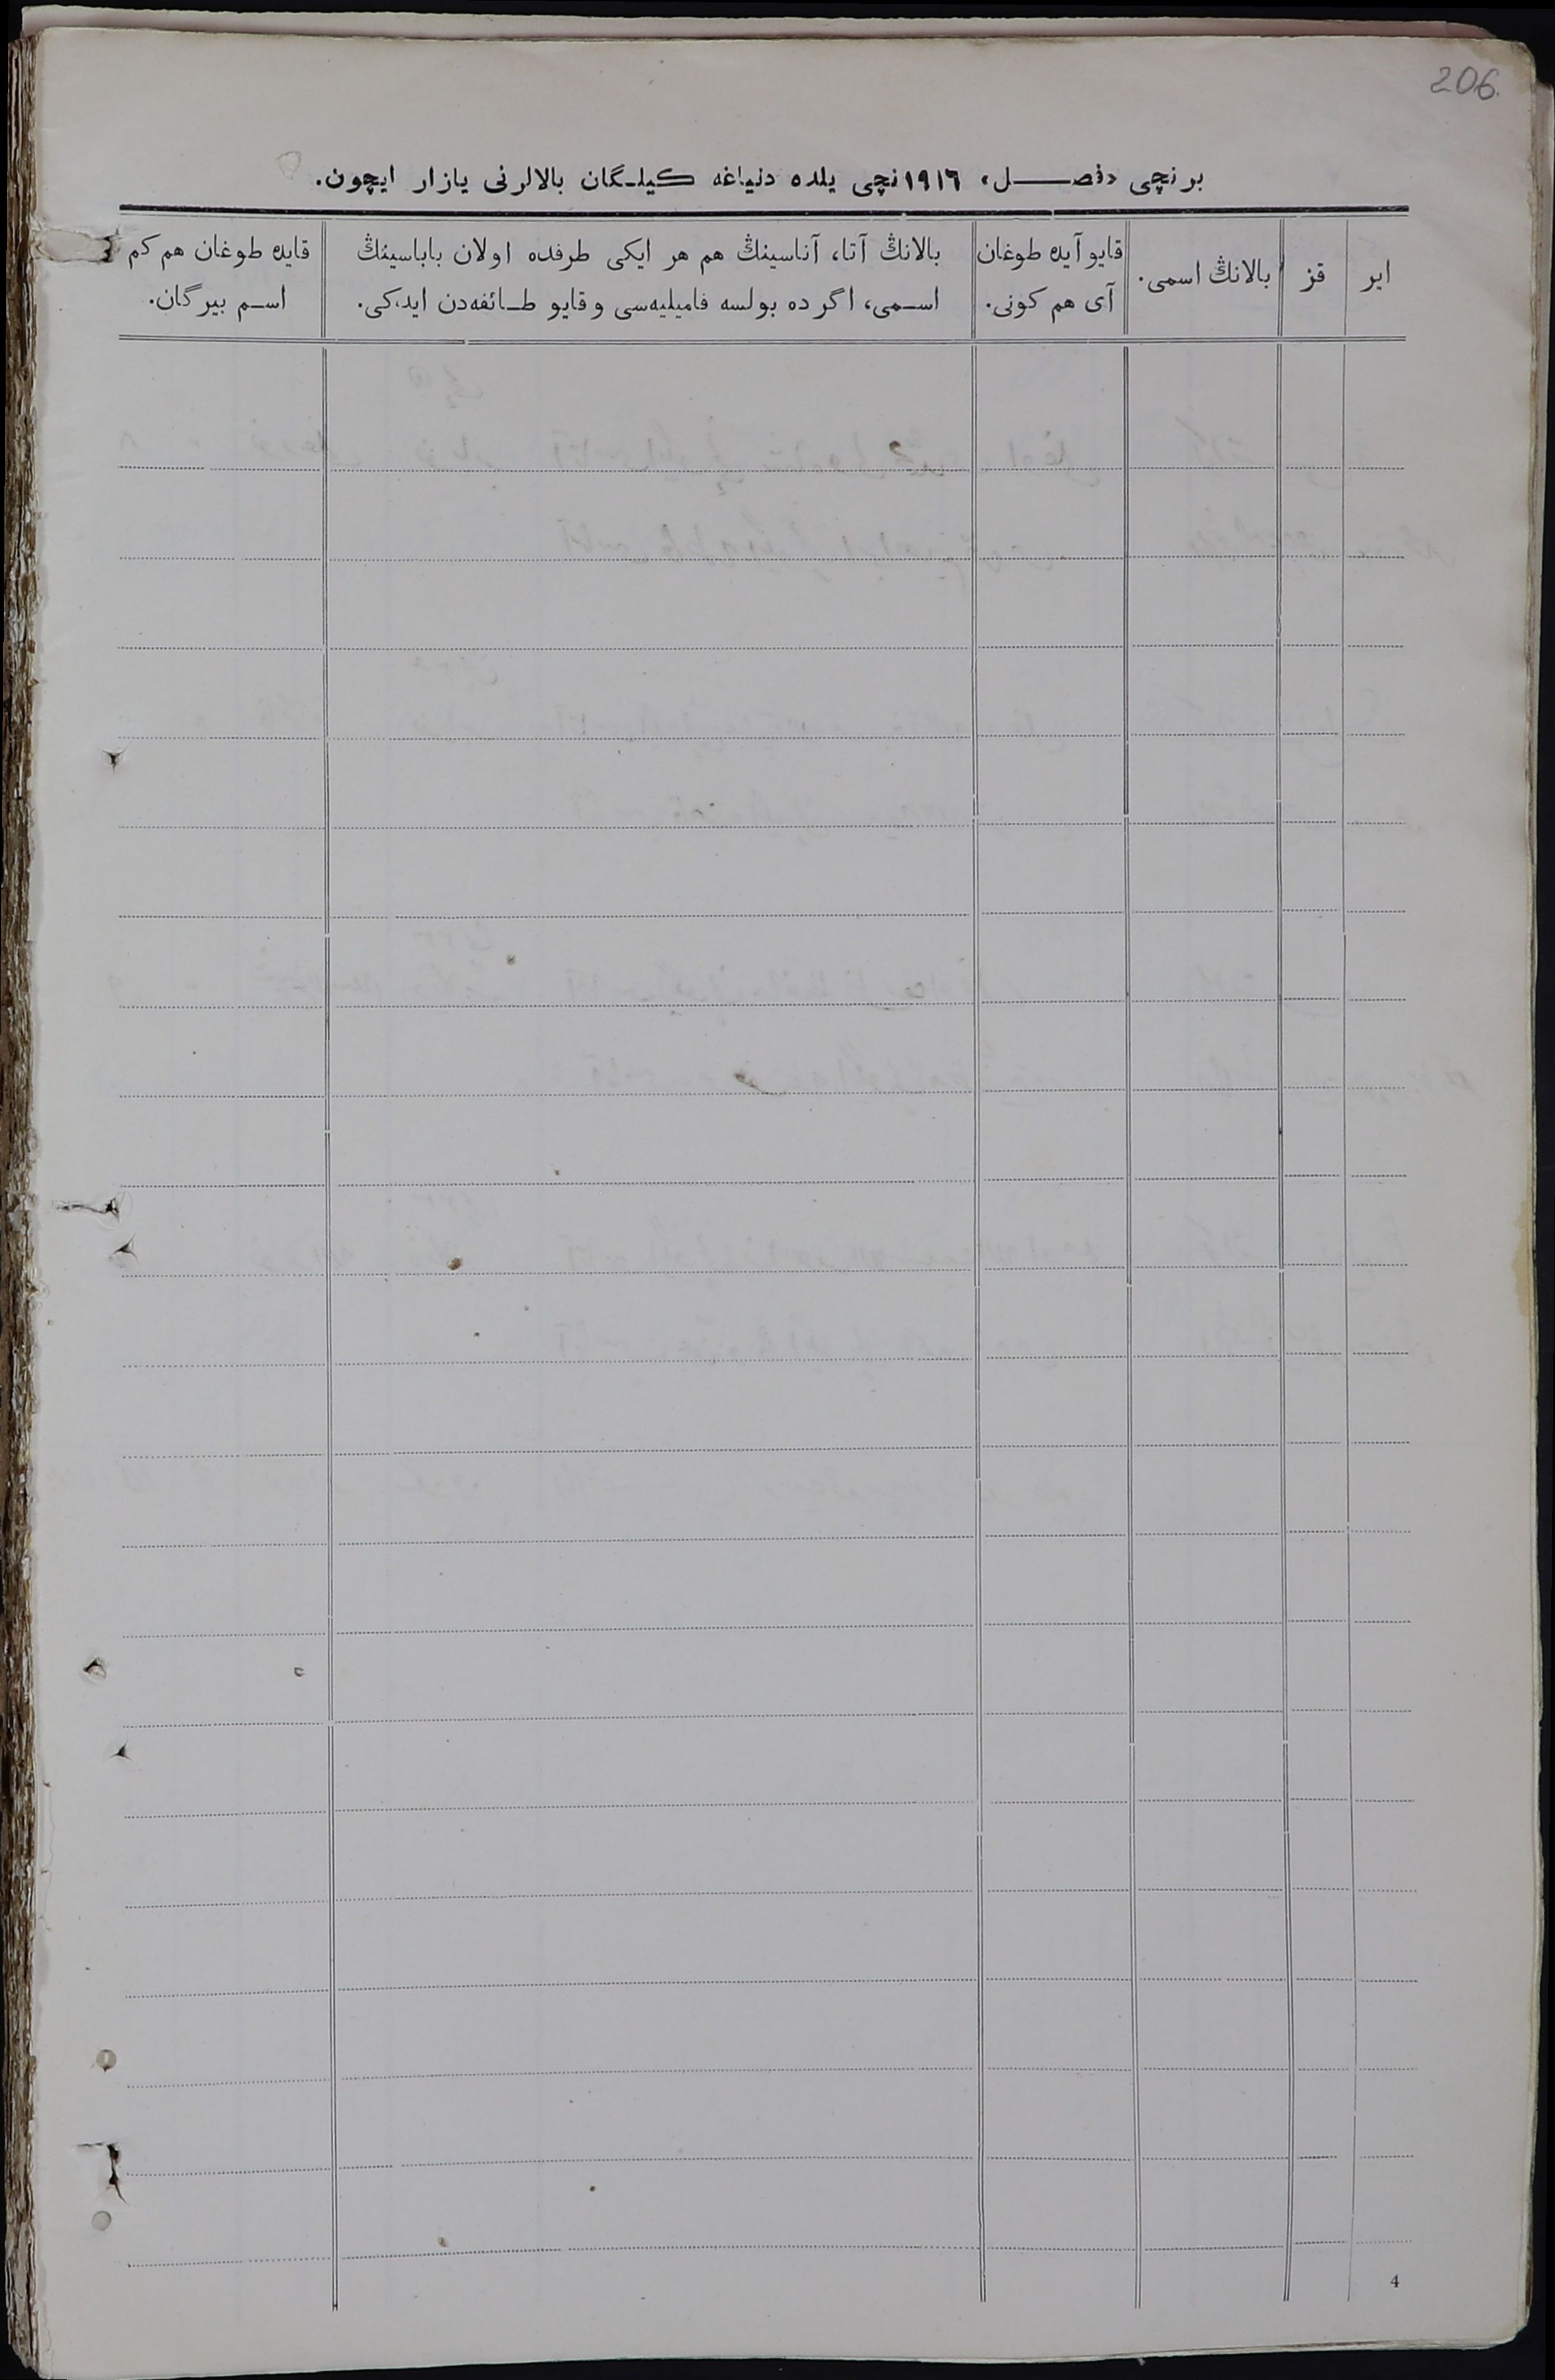 206.
برنچی «فصل» ١٩١٦نچی يلده دنياغه كيلگان بالالرنی يازار ايچون.
اير
قز
بالانڭ اسمی.
قايو آيده طوغان
آی هم كونی.
بالانڭ آتا، آناسينڭ هم هر ايكی طرفده اولان باباسينڭ
اسمی، اگر ده بولسه فاميليه‌سی و قايو طائفه‌دن ايدكی.
قايده طوغان هم كم
اسم بيرگان.
4